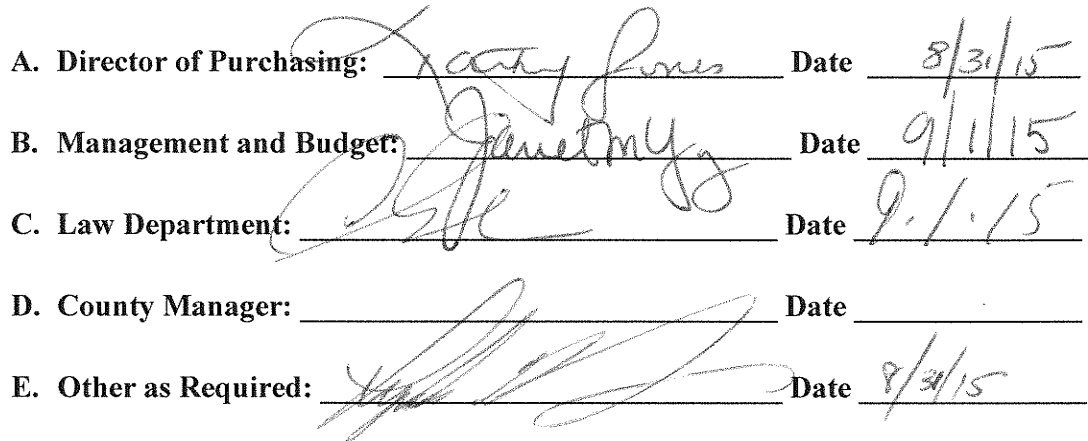 A. Director of Purchasing: Kathy Jones Date 8/31/15
B. Management and Budget: Janet M Date 9/1/15
C. Law Department: Date 9.1.15
D. County Manager: Date
E. Other as Required: Date 8/31/15